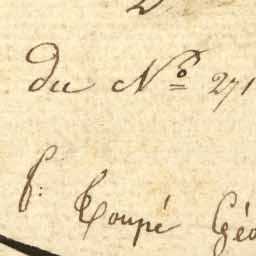 du Nº 271
f: Toupé Géo